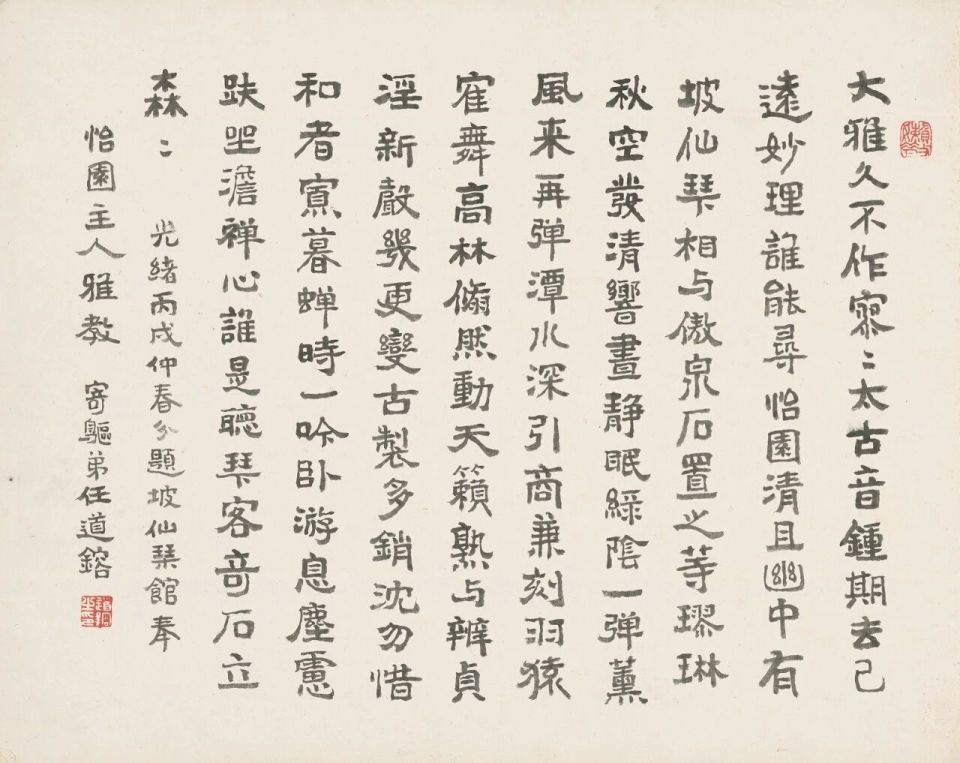 大雅久不作寥〻太古音鍾期去已
遠妙理誰能尋怡園清且幽中有
坡仙琴相与傲泉石置之等璆琳
秋空發清響晝静眠綠陰一弹薰
風来再弹潭水深引商兼刻羽猿
寉舞高林翛然動天籟熟与辨貞
淫新聲幾更變古製多銷沈勿惜
和者寡暮蝉時一吟卧游息塵慮
趺坐澹禅心誰是聽琴客奇石立
森〻 光緒丙戌仲春分題坡仙琴館奉
怡園主人雅教 寄鷗弟任道鎔